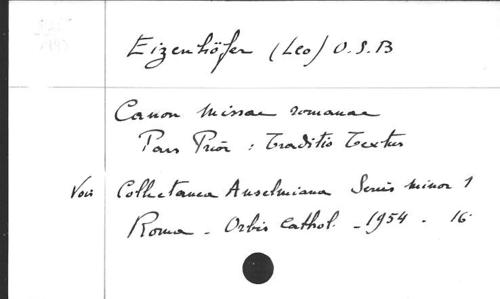 Eizenhöfer (Leo) O.S.B
Canon missae romanae
Pars Prior : Traditio Textus
Voir Collectanea Anselmiana Series minor 1
Roma - Orbis Cathol. - 1954 - 16